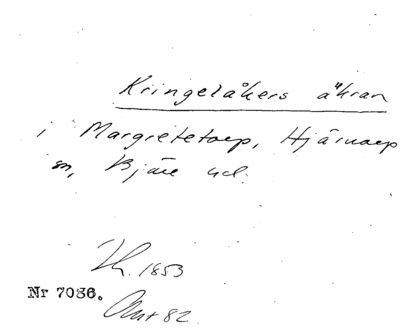 Kringelåkers åkran
i Margretetorp, Hjärnarp
sn, Bjäre hd.
1853
Nr 7086.
82